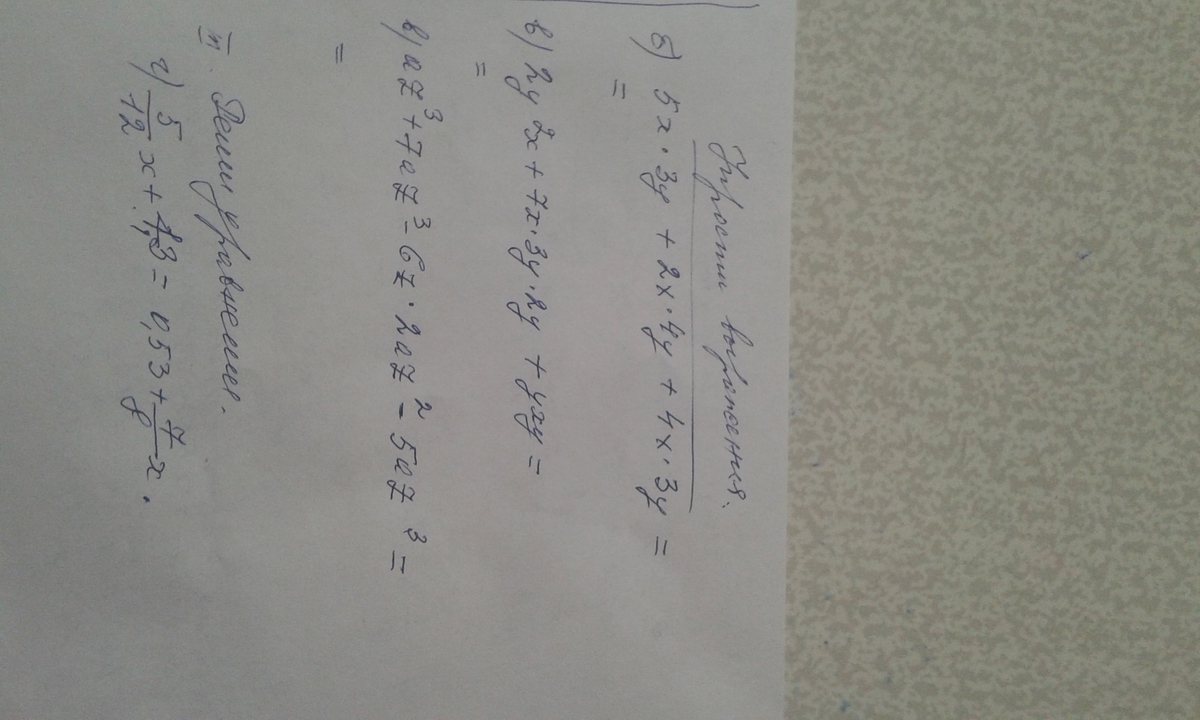 Упрости выражения.
б) 5x · 3y + 2x · 4y + 4x · 3y =
=
в) 2y 2x + 7x · 3y · 2y + yxy =
=
в) az³ + 7az³ - 6z · 2az² - 5az³ =
=
III. Реши уравнение.
г) 5/12 x + 1,3 = 0,53 + 7/8 x.